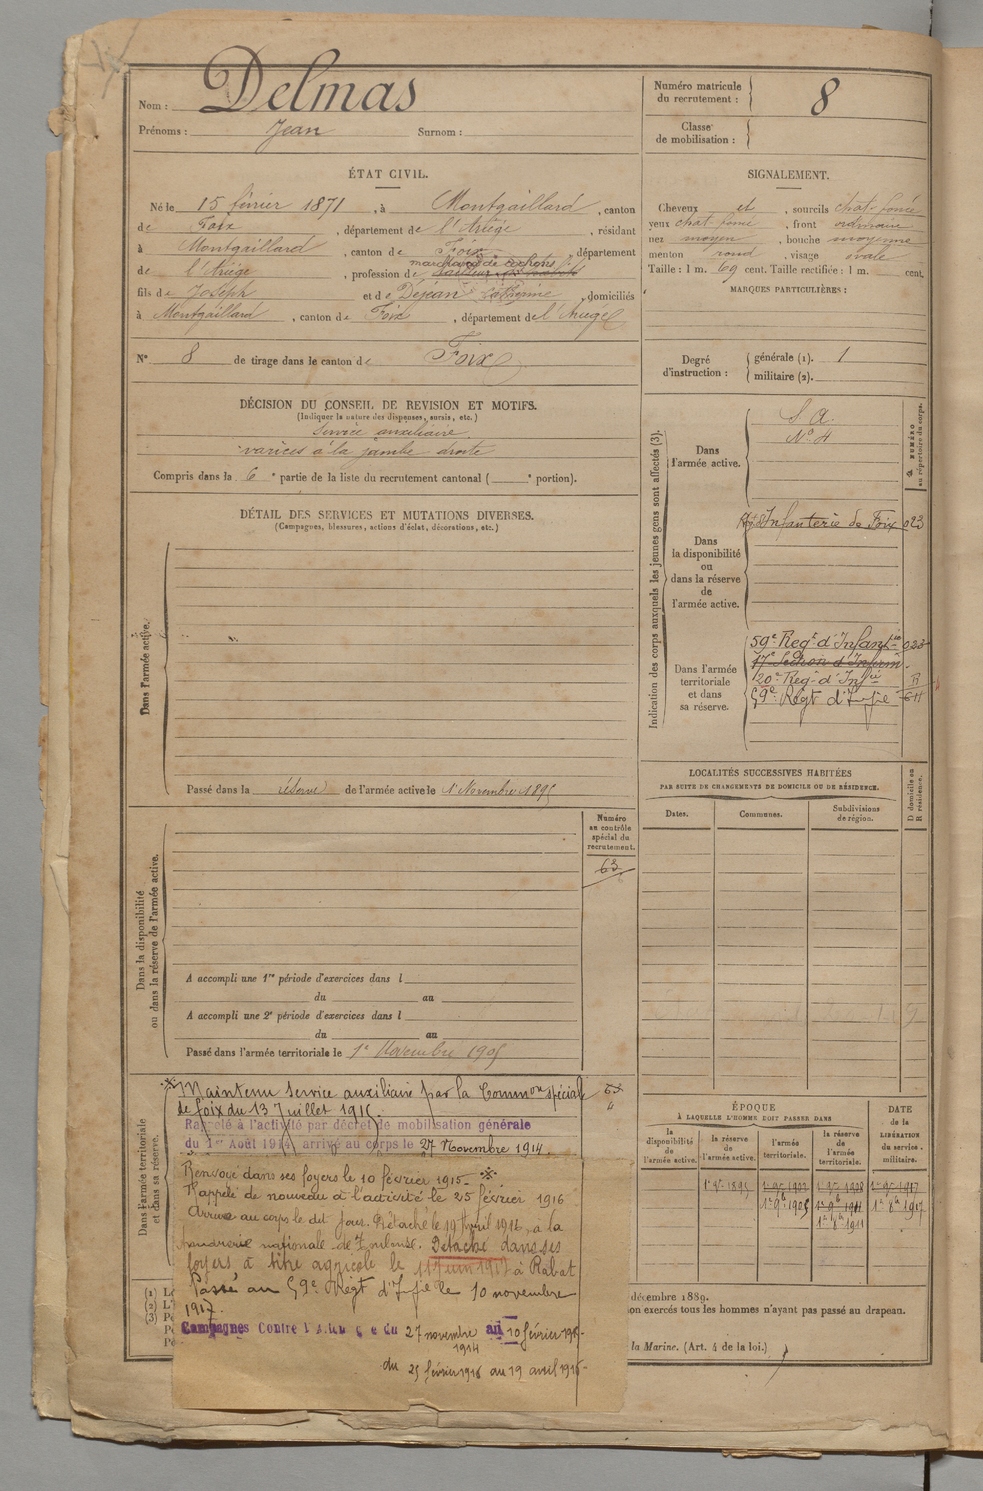 Nom : Delmas
Prénoms : Jean Surnom :
Numéro matricule
du recrutement : 8
Classe
de mobilisation :
ÉTAT CIVIL.
Né le 15 février 1871, à Montgaillard, canton
de Foix, département de l'Ariège, résidant
à Montgaillard, canton de Foix, département
marchand de cochons
de l'Ariège, profession de
fils de Joseph et de Dejean Catherine, domiciliés
à Montgaillard, canton de Foix, département de l'Ariège
N° 8 de tirage dans le canton de Foix
SIGNALEMENT.
Cheveux et, sourcils chat. foncé
yeux chat. foncé, front ordinaire
nez moyen, bouche moyenne
menton rond, visage ovale
Taille : 1 m. 69 cent. Taille rectifiée : 1 m. cent.
MARQUES PARTICULIÈRES :
Degré
d'instruction :
générale (1). 1
militaire (2).
DÉCISION DU CONSEIL DE REVISION ET MOTIFS.
(Indiquer la nature des dispenses, sursis, etc.)
Service auxiliaire
varices à la jambe droite
Compris dans la 6e partie de la liste du recrutement cantonal ( e portion).
DÉTAIL DES SERVICES ET MUTATIONS DIVERSES.
(Campagnes, blessures, actions d'éclat, décorations, etc.)
Dans l'armée active.
Passé dans la réserve de l'armée active le 1 Novembre 1895
Indication des corps auxquels les jeunes gens sont affectés (3).
NUMÉRO
au répertoire du corps.
Dans
l'armée active.
S. A.
N° 4
Dans
la disponibilité
ou
dans la réserve
de
l'armée active.
Infanterie de Foix 023
Dans l'armée
territoriale
et dans
sa réserve.
59e Regt d'Infanie
17e Section d'Infirm.
120e Reg. d'Infie
59e Régt d'Infie
LOCALITÉS SUCCESSIVES HABITÉES
PAR SUITE DE CHANGEMENTS DE DOMICILE OU DE RÉSIDENCE.
Dates.
Communes.
Subdivisions
de région.
D domicile ou
R résidence.
Numéro
au contrôle
spécial du
recrutement.
63
Dans la disponibilité
ou dans la réserve de l'armée active.
A accompli une 1re période d'exercices dans l
du au
A accompli une 2e période d'exercices dans l
du au
Passé dans l'armée territoriale le 1e Novembre 1905
Dans l'armée territoriale
et dans sa réserve.
Maintenu service auxiliaire par la Common spéciale
de foix du 13 Juillet 1915.
Rappelé à l'activité par décret de mobilisation générale
du 1er Août 1914, arrivé au corps le 27 Novembre 1914.
Renvoyé dans ses foyers le 10 février 1915
Rappelé de nouveau à l'activité le 25 février 1916
Arrivé au corps le dit jour. Détaché le 19 Avril 1916, à la
poudrerie nationale de Toulouse. Détaché dans ses
foyers à titre agricole le juin 1917 à Rabat
Passé au 59e Régt d'Infie le 10 novembre
1917.
Campagnes Contre l'Allemagne du 27 novembre 1914 au 10 février 1915.
du 25 février 1916 au 19 avril 1916
ÉPOQUE
À LAQUELLE L'HOMME DOIT PASSER DANS
la
disponibilité
de
l'armée active.
la réserve
de
l'armée active.
l'armée
territoriale.
la réserve
de
l'armée
territoriale.
DATE
de la
LIBÉRATION
du service
militaire.
1e 9e 1895 1e 9e 1902 1e 9e 1908 1e 9e 1917
1e 9b 1905 1e 9b 1911 1e 8b 1917
1e 8b 1911
(1)
(2)
(3)
décembre 1889.
ion exercés tous les hommes n'ayant pas passé au drapeau.
la Marine. (Art. 4 de la loi.)